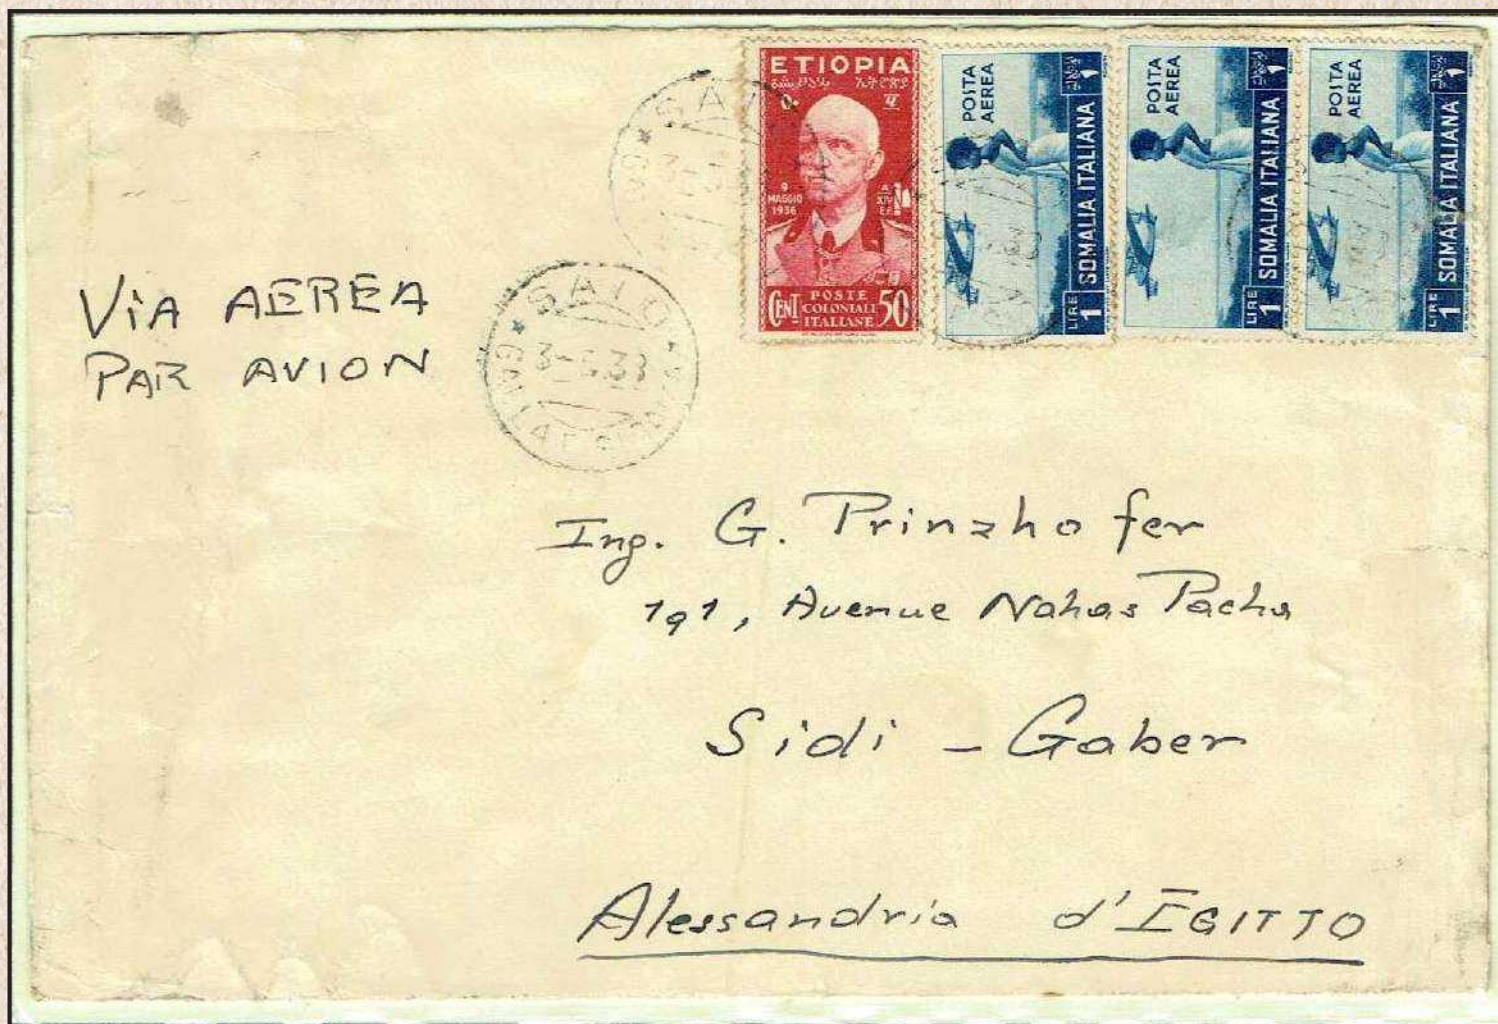 ETIOPIA
9 MAGGIO 1936
A XIV E.F.
CENT POSTE COLONIALI ITALIANE 50
POSTA AEREA
LIRE 1 SOMALIA ITALIANA 1
POSTA AEREA
LIRE 1 SOMALIA ITALIANA 1
POSTA AEREA
LIRE 1 SOMALIA ITALIANA 1
VIA AEREA
PAR AVION
SAIO
Ing. G. Prinzhofer
191, Avenue Nahas Pacha
Sidi - Gaber
Alessandria d'EGITTO